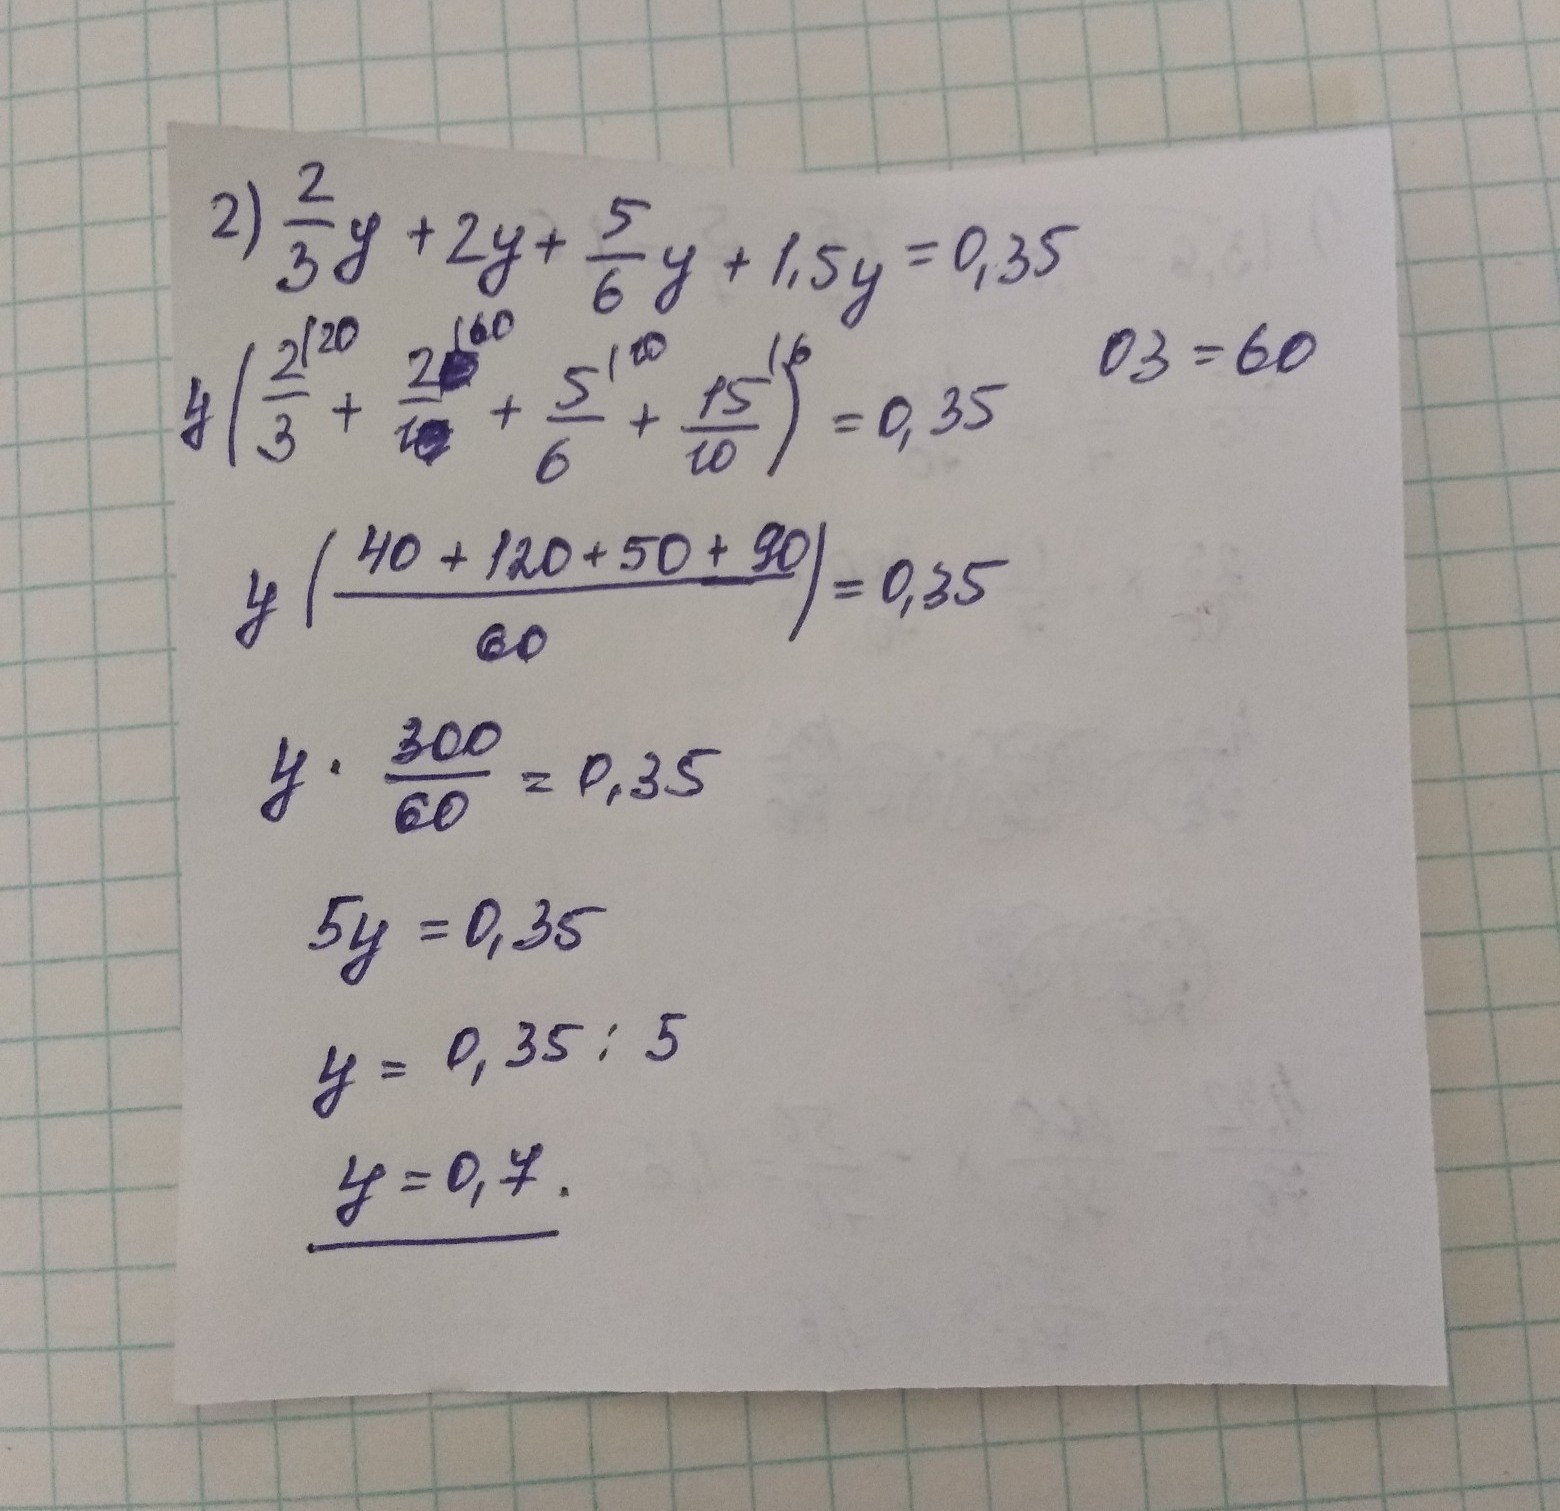 2) 2/3 y + 2y + 5/6 y + 1,5y = 0,35
y (2/3 |20 + 2/1 |60 + 5/6 |10 + 15/10 |6) = 0,35 ОЗ = 60
y ((40 + 120 + 50 + 90)/60) = 0,35
y · 300/60 = 0,35
5y = 0,35
y = 0,35 : 5
y = 0,7.